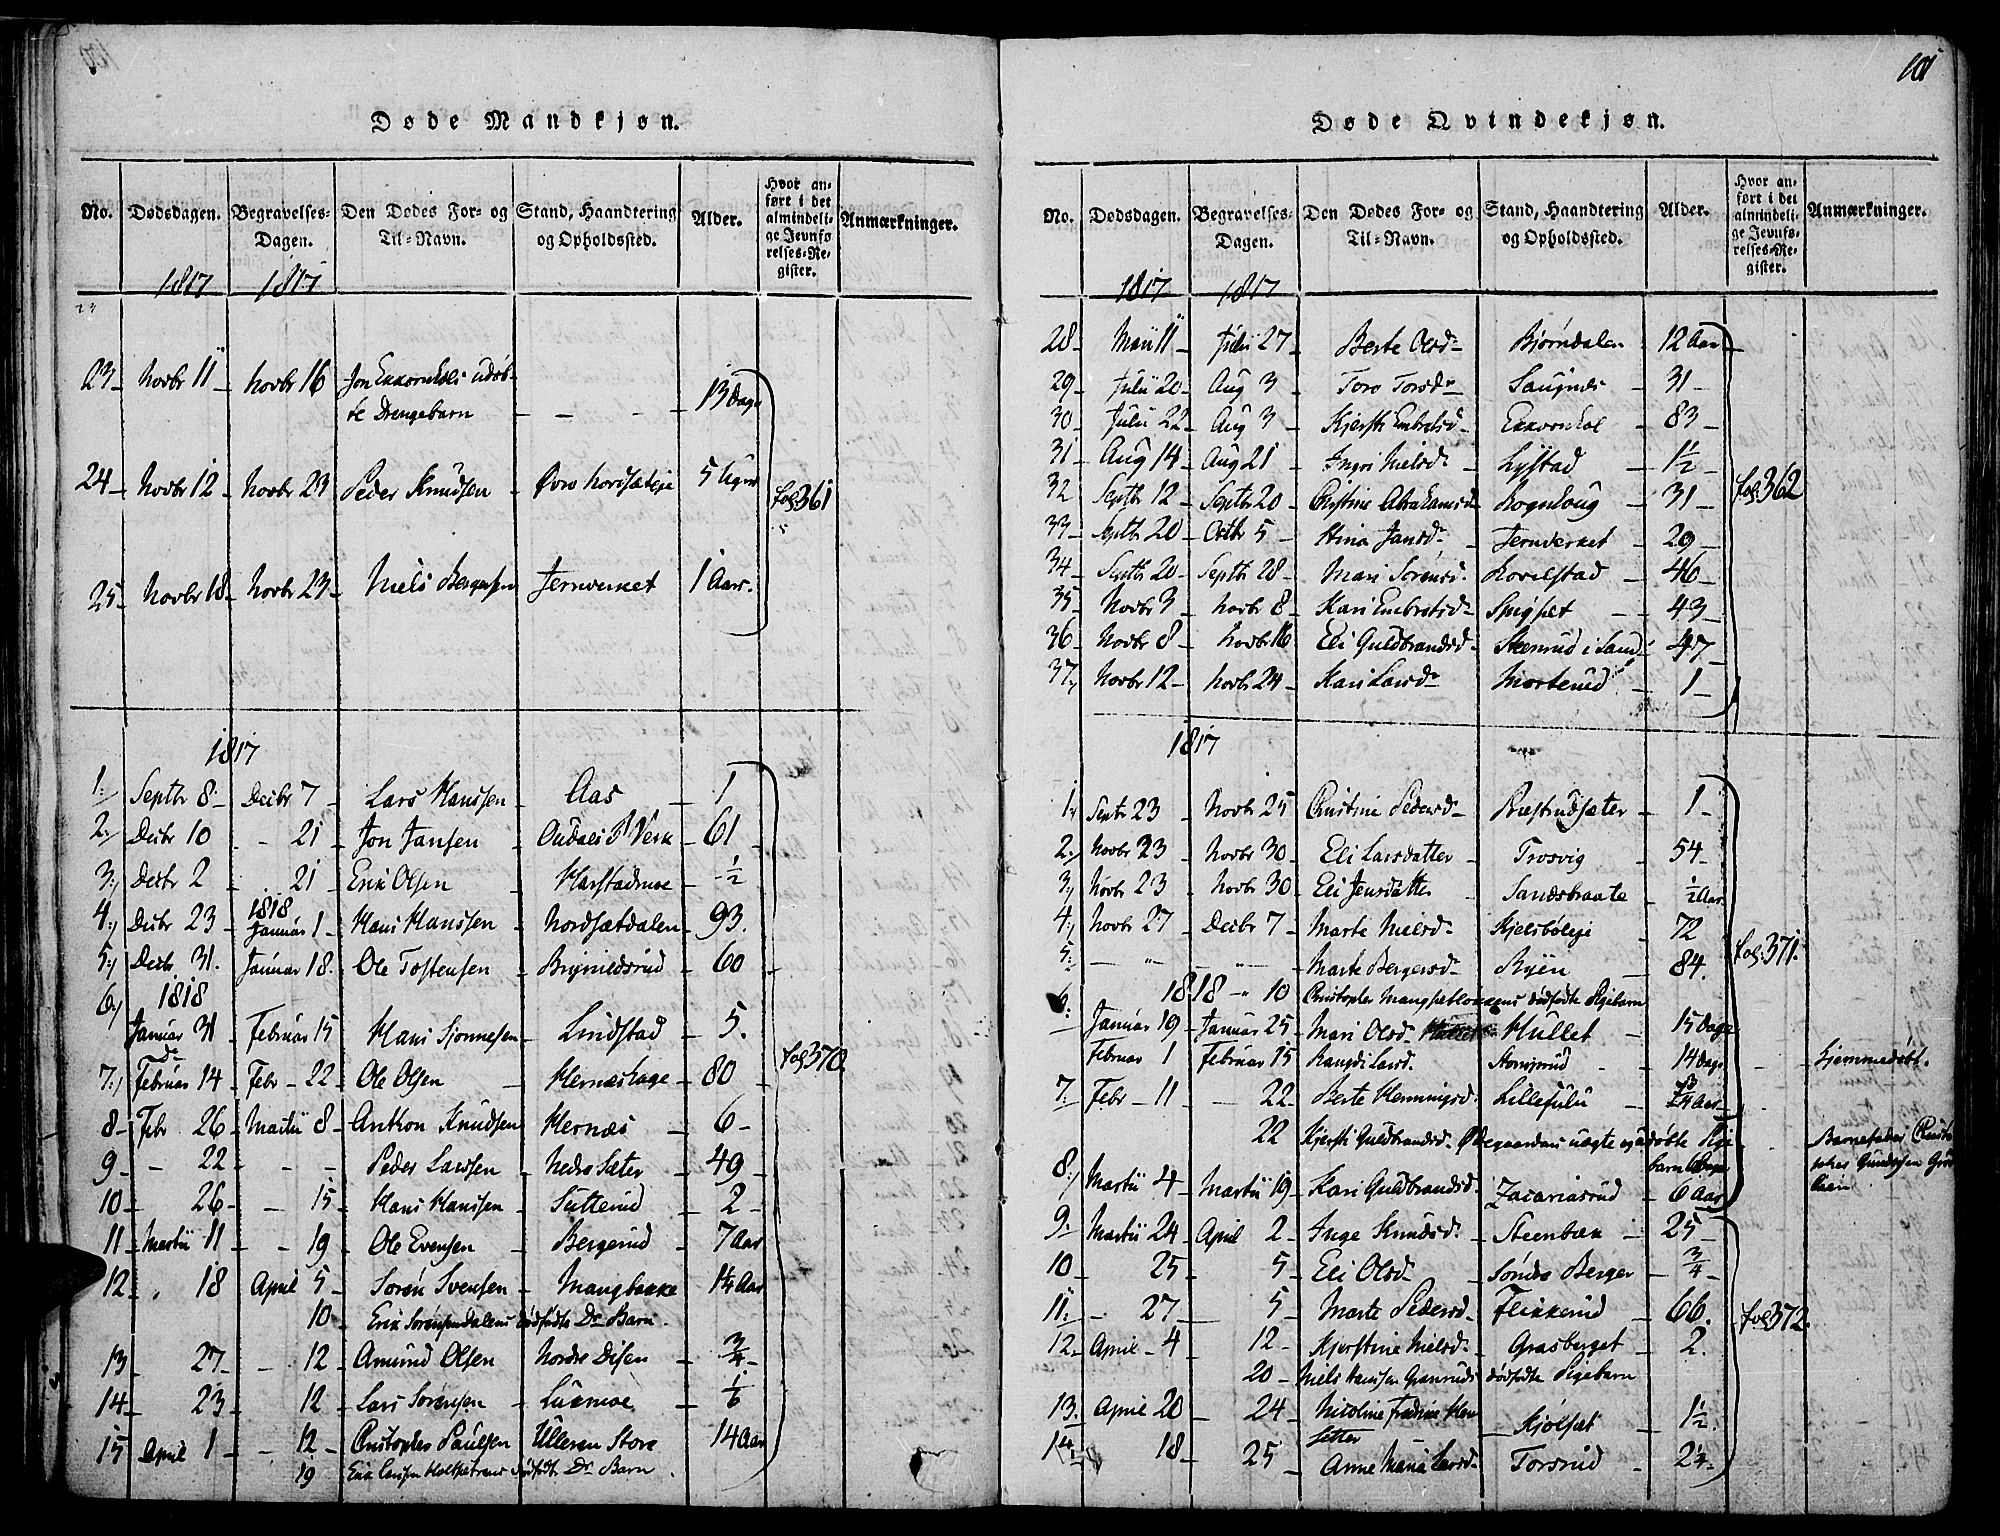 101
Døde Mandkjøn.
No. Dødsdagen. Begravelses-Dagen. Den Dødes For- og Til-Navn. Stand, Haandtering og Opholdssted. Alder. Hvor anført i det almindelige Jevnførelses-Register. Anmærkninger.
1817 1817
23 Novbr 11 Novbr 16 Jon Ekkornhols udøb-
te Drengebarn 13 Dage
24 Novbr 12 Novbr 23 Peder Knudsen Øvre 5 Uger fol: 361
25 Novbr 18 Novbr 23 Niels Bergersen Jernverket 1 Aars.
1817
1 Septbr 8 Decbr 7 Lars Hanssen Aas 1
2 Decbr 10 21 Jon Jansen Oudals Verk 61
3 Decbr 2 21 Erik Olsen Harstadmoe 1/2
4 Decbr 23 1818 Januar 1 Hans Hanssen Nordsætdalen 93.
5 Decbr 31. Januar 18. Ole Tostensen Brynildsrud 60
6 1818
Januar 31 Februar 15 Hans Sjønnesen Lindstad 5.
7 Februar 14 Febr 22 Ole Olsen Hernæshage 80 fol: 370
8 Febr 26 Martii 8 Anthon Knudsen Hernæs 6
9 22 Peder Larssen Nedre Sæter 49
10 26 15 Hans Hanssen Sutterud 2
11 Martii 11 19 Ole Evensen Bergerud 7 Aar
12 18 April 5 Søren Svensen Mangbakke 1 1/4 Aar
10 Erik Sørensendalens dødfødte Dr Barn.
13 27 12 Amund Olsen Nordre Disen 3/4
14 23 12 Lars Sørensen Luermoe 1/6
15 April 1 12 Christopher Paulsen Ulleren Store 14 Aar
19 Erik Larssen dødfødte Dr Barn.
Døde Qvindekjøn.
No. Dødsdagen. Begravelses-Dagen. Den Dødes For- og Til-Navn. Stand, Haandtering og Opholdssted. Alder. Hvor anført i det almindelige Jevnførelses-Register. Anmærkninger.
1817 1817
28 Maii 11 Julii 27 Berte Olsd Bjørndalen 12 Aar
29 Julii 20 Aug 3 Toro Torsd Saugnes 31
30 Julii 22 Aug 3 Kjersti Embretsd Ekkornhol 83
31 Aug 14 Aug 21 Ingri Nielsd Lystad 1 1/2
32 Septbr 12 Septbr 20 Christine Abrahamsd Rognhoug 31 fol: 362
33 Septbr 20 Octbr 5 Stina Jansd Jernverket 29
34 Septbr 20 Septbr 28 Mari Sørensd. 46
35 Novbr 3 Novbr 8 Kari Embretsd Spigset 43
36 Novbr 8 Novbr 16 Eli Guldbrandsd Steenrud i Sand 47
37 Novbr 12 Novbr 24 Kari Larsd Morterud 1
1817
1 Septr 23 Novbr 25 Christine Pedersd Ræstrudsæter 1
2 Novbr 23 Novbr 30 Eli Larsdatter Trosvig 54
3 Novbr 23 Novbr 30 Eli Jensdatter Sandsbraate 1/2 Aar
4 Novbr 27 Decbr 7 Marte Nielsd Kjelsbøleje 72
5 Marte Bergersd Ryen 84. fol: 371.
6 1818 10 Christopher dødfødte Pigebarn
Januar 19 Januar 25 Mari Olsd Hullet 15 Dage
Februar 1 Februar 15 Rangdi Larsd. Stomsrud 14 Dage hjemmedøbt.
7 Febr 11 22 Berte Henningsd. Lillefulu 3/4 Aar
22 Kjersti Guldbrandsd. Ødegaardens uægte udøbte Pige-
barn 6 Dage Barnefader Christopher Gundersen
8 Martii 4 Martii 19 Kari Guldbrandsd. Zacariasrud 6 Aar
9 Martii 24 April 2 Inge Knudsd. Steenbæk 25
10 25 5 Eli Olsd Søndre Berger 3/4
11 27 5 Marte Pedersd Flikkerud 66. fol: 372.
12 April 4 12 Kjerstine Nielsd Grasberget 2.
20 Niels Hanssen Granruds dødfødte Pigebarn
13 April 20 24 Nicoline Fredrine Hen-
setter Kjølset 1 1/2
14 18 25 Anne Maria Larsd Torsrud 2 1/4